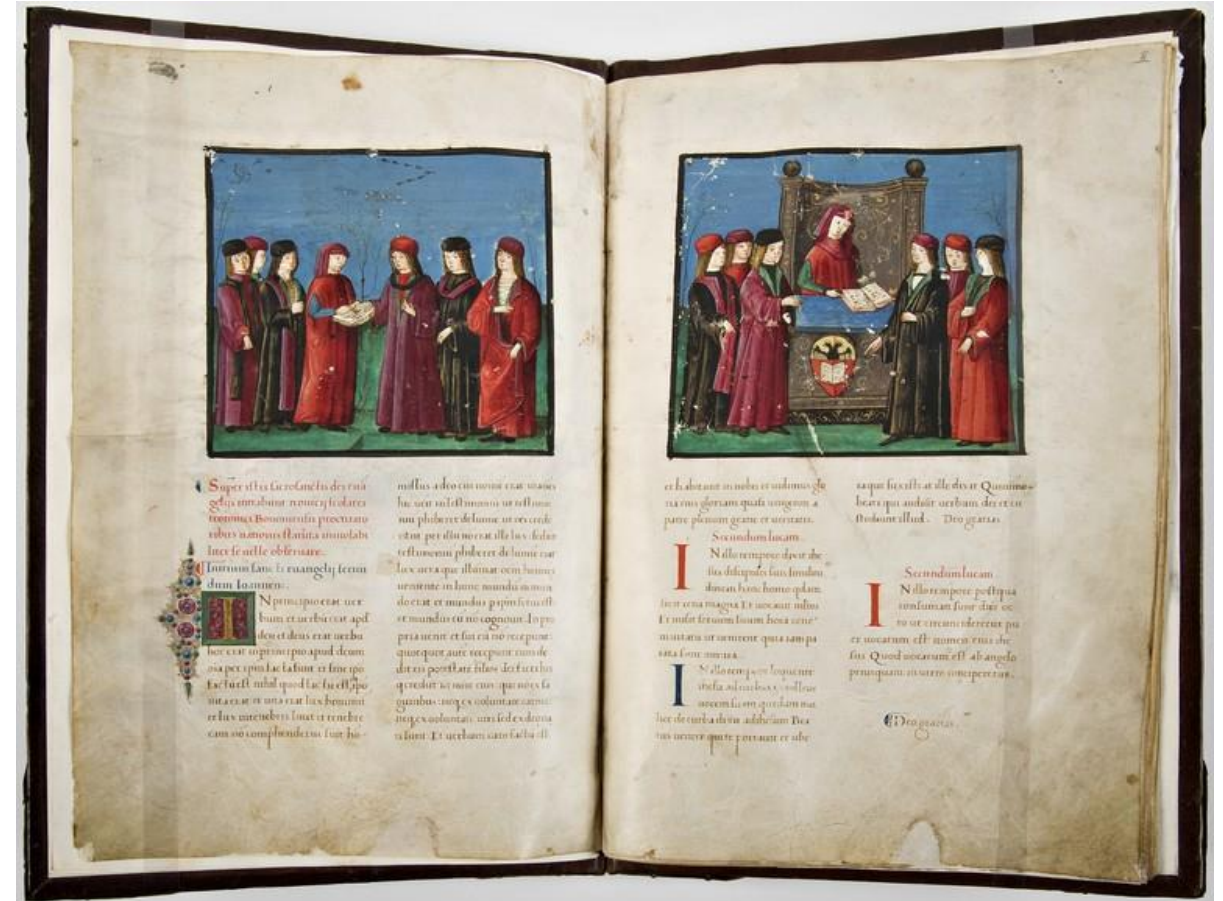 Super istis sacrosanctis dei euã
gelijs iurabunt nouicij scolares
procurato
ribus nationis statuta inuiolabi
liter se uelle obseruare.
Initium sancti euangelij secun
dum Ioannem.
IN principio erat uer
bum et uerbũ erat apd
deũ et deus erat uerbũ
hoc erat in principio apud deum
oĩa per ipsũ facta sunt et sine ipo
factũ est nihil quod factũ est ĩ ipo
uita erat et uita erat lux hominũ
et lux in tenebris lucet et tenebre
eam nõ comphenderũt fuit ho-
missus a deo cui nomẽ erat
hic uenit in testimoniũ ut testimo
niũ phiberet de lumine ut
per illũ nõ erat ille lux sed ut
testimoniũ phiberet de lumine erat
lux uera que illuminat oẽm hominẽ
uenientẽ in hunc mundũ in mun
do erat et mundus p ipm factus est
et mundus eũ nõ cognouit. In pro
pria uenit et sui eũ nõ receperũt
quotquot autẽ receperũt eum de
dit eis potestatẽ filios dei fieri his
q credũt in noīe eius qui nõ ex sã
guinibus neq ex uoluntate carnis
neq ex uoluntate uiri sed ex deo na
ti sunt. Et uerbum caro factũ est
et habitauit in nobis et uidimus glo
riã eius gloriam quasi unigeniti a
patre plenum gratie et ueritatis.
Secundum lucam.
IN illo tempore dixit ihe
sus discipulis suis similitu
dinem hanc homo qdam
fecit cenã magnã Et uocauit multos
Et misit seruum suum hora cene
inuitatis ut uenirent quia iam pa
rata sunt omnia.
IN illo tempore loquente
ihesu ad turbas extollens
uocem suam quedam mu
lier de turba dixit ad ihesum Bea
tus uenter qui te portauit et ube
ra que suxisti at ille dixit Quinimo-
beati qui audiũt uerbum dei et cu
stodiunt illud. Deo gratias
Secundum lucam
IN illo tempore postquã
consumati sunt dies oc
to ut circuncideretur pu
er uocatum est nomen eius ihe
sus Quod uocatum est ab angelo
priusquam in utero conciperetur.
Deo gratias.